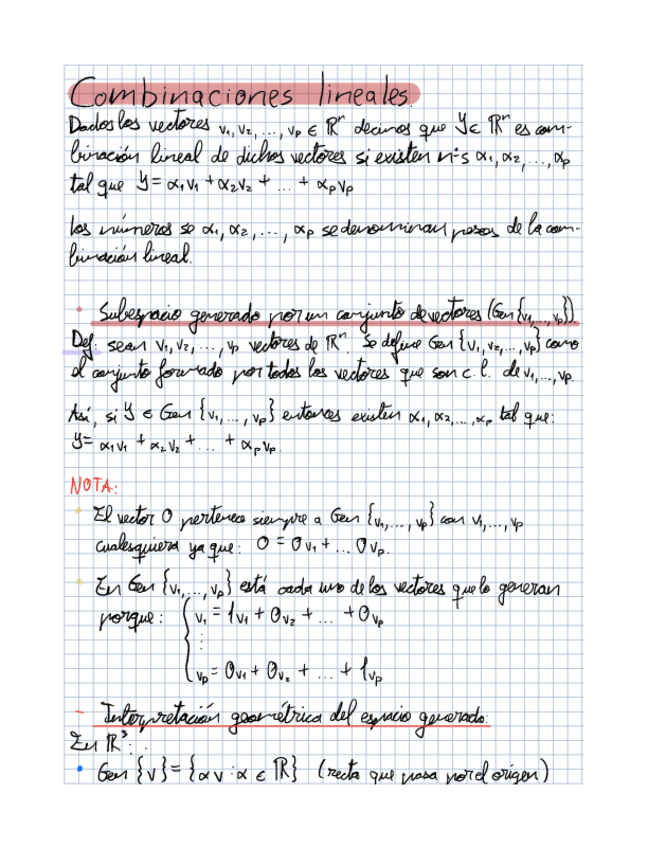 Combinaciones lineales.
Dados los vectores v₁, v₂, ..., vₚ ∈ ℝⁿ decimos que y ∈ ℝⁿ es com-
binación lineal de dichos vectores si existen nºs α₁, α₂, ..., αₚ
tal que y = α₁v₁ + α₂v₂ + ... + αₚvₚ
Los números se α₁, α₂, ..., αₚ se denominan pesos de la com-
binación lineal.
• Subespacio generado por un conjunto de vectores (Gen {v₁, ..., vₚ})
Def: sean v₁, v₂, ..., vₚ vectores de ℝⁿ. Se define Gen {v₁, v₂, ..., vₚ} como
el conjunto formado por todos los vectores que son c.l. de v₁, ..., vₚ.
Así, si y ∈ Gen {v₁, ..., vₚ} entonces existen α₁, α₂, ..., αₚ tal que:
y = α₁v₁ + α₂v₂ + ... + αₚvₚ.
NOTA:
• El vector 0 pertenece siempre a Gen {v₁, ..., vₚ} con v₁, ..., vₚ
cualesquiera ya que: 0 = 0v₁ + ... 0vₚ.
• En Gen {v₁, ..., vₚ} está cada uno de los vectores que lo generan
porque: { v₁ = 1v₁ + 0v₂ + ... + 0vₚ
⋮
vₚ = 0v₁ + 0v₂ + ... + 1vₚ
- Interpretación geométrica del espacio generado:
En ℝ³:
• Gen {v} = {αv : α ∈ ℝ} (recta que pasa por el origen)